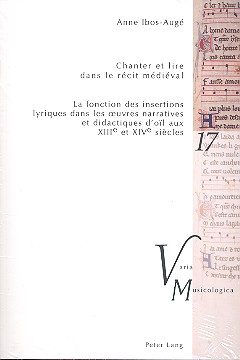 Anne Ibos-Augé
Chanter et lire
dans le récit médiéval
La fonction des insertions
lyriques dans les œuvres narratives
et didactiques d'oïl aux
XIIIe et XIVe siècles
17
Varia
Musicologica
Peter Lang